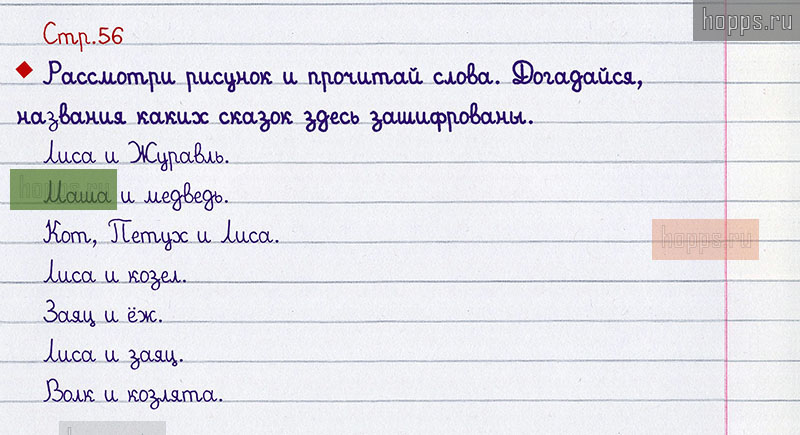 hopps.ru
Стр.56
Рассмотри рисунок и прочитай слова. Догадайся,
названия каких сказок здесь зашифрованы.
Лиса и Журавль.
Маша и медведь.
Кот, Петух и Лиса.
hopps.ru
Лиса и козел.
Заяц и ёж.
Лиса и заяц.
Волк и козлята.